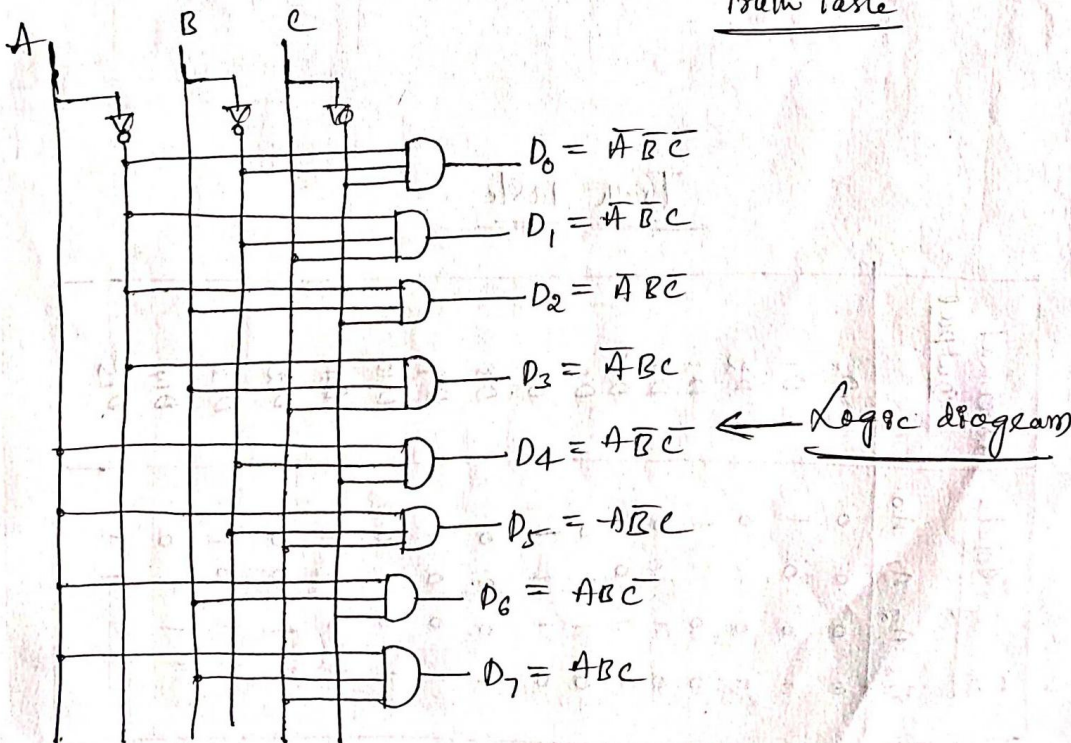 Truth Table
A B C
D₀ = A̅ B̅ C̅
D₁ = A̅ B̅ C
D₂ = A̅ B C̅
D₃ = A̅ B C
D₄ = A B̅ C̅
← Logic diagram
D₅ = A B̅ C
D₆ = A B C̅
D₇ = A B C